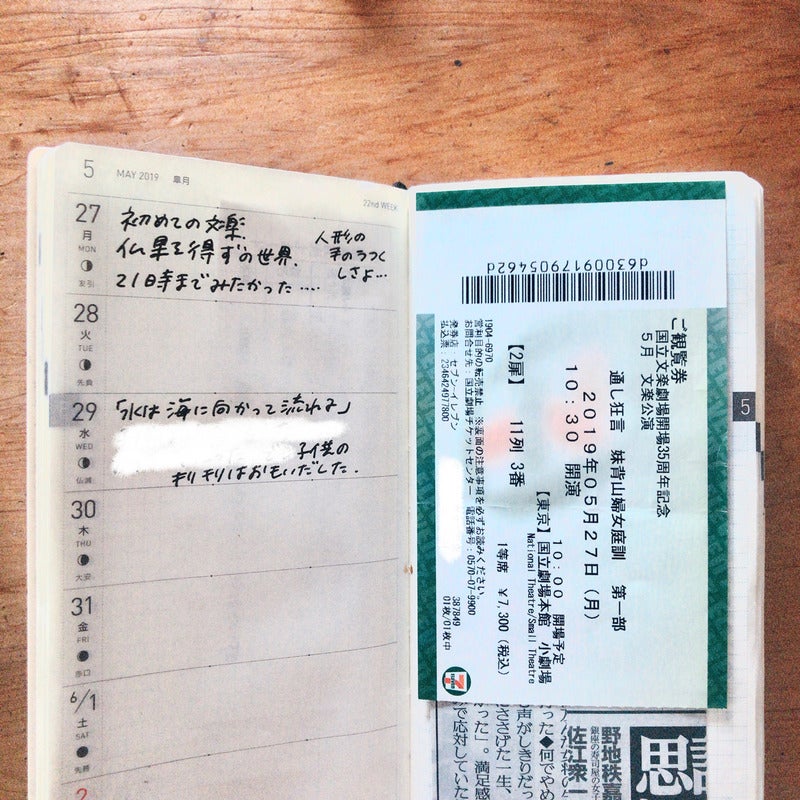 5 MAY 2019 皐月
22nd WEEK
27
月
MON
友引
初めての文楽.
仏果を得ずの世界.
21日寺までみたかった....
人形の
手のうつく
しさよ...
28
火
TUE
先負
29
水
WED
仏滅
「水は海に向かって流れる」
子供の
キリキリはおもいだした.
30
木
THU
大安
31
金
FRI
赤口
6/1
土
SAT
先勝
2
d6300091790546​2d
ご観覧券
国立文楽劇場開場35周年記念
5月 文楽公演
通し狂言 妹背山婦女庭訓 第一部
2019年05月27日(月)
10:30 開演
10:00 開場予定
【東京】国立劇場本館 小劇場
National Theatre/Small Theatre
【2扉】 11列 3番
1等席 ¥7,300(税込)
1904-6970
営利目的の転売禁止 ※裏面の注意事項を必ずお読みください。
お問合せ先:国立劇場チケットセンター 電話番号:0570-07-9900
発券店:セブン-イレブン
払込票:2346424977800
387849
01枚/01枚中
5
思
野地秩嘉
銀座の寿司屋の女子
佐江衆一
った◆何でやめ
声がしきりだっ
つけた一生、
った」。満足感
で応対していた